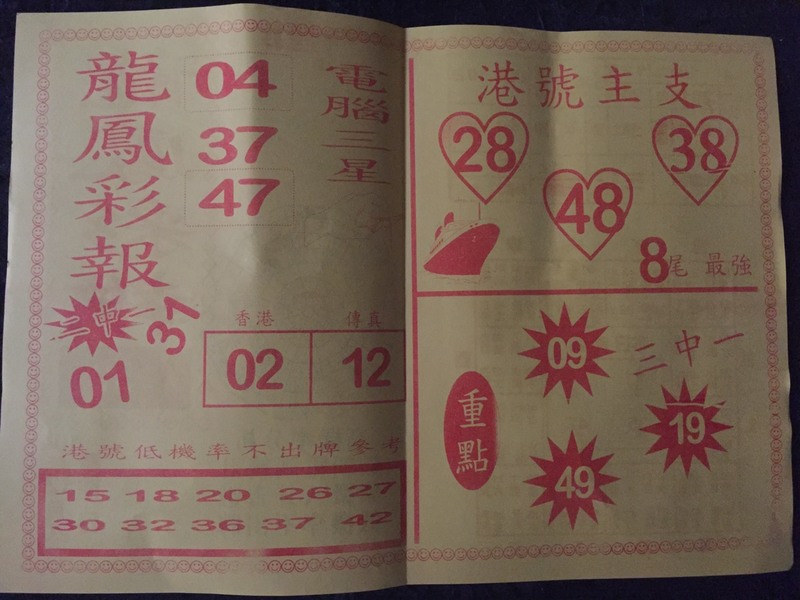 龍鳳彩報
04
37
47
電腦三星
二中一
01
37
香港 傳真
02 12
港號低機率不出牌參考
15 18 20 26 27
30 32 36 37 42
港號主支
28
48
38
8尾 最強
重點
三中一
09
19
49